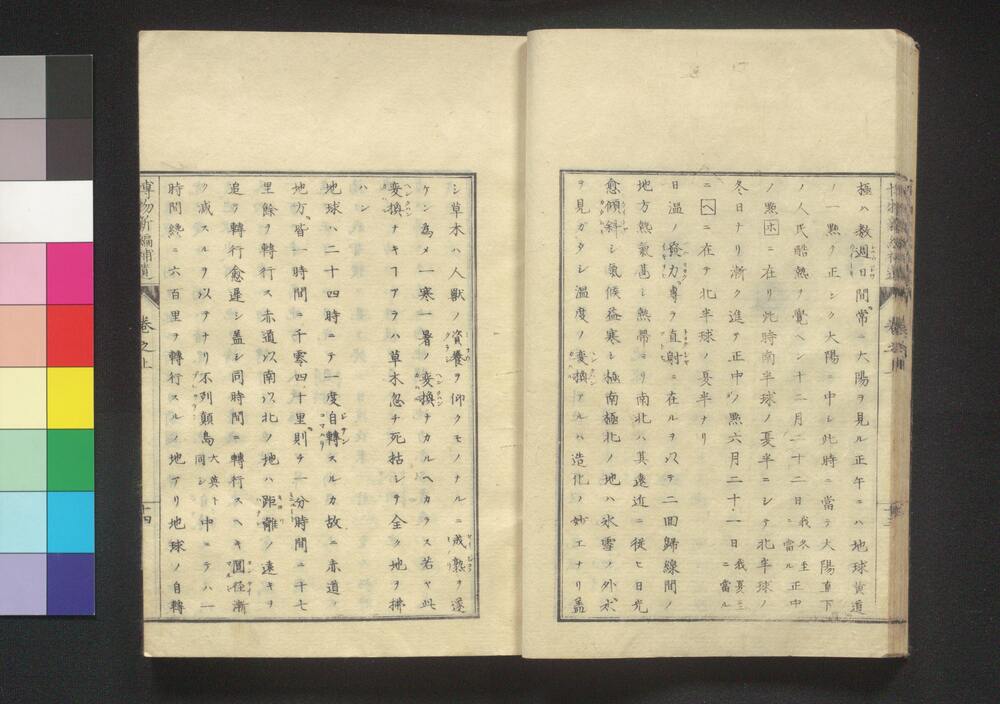 極ハ數週日間常ニ大陽ヲ見ル正午ニハ地球黄道
ノ一點ヲ正シク大陽ニ中シ此時ニ當テ大陽直下
ノ人民酷熱ヲ覺ヘシ十二月二十二日我冬至ニ當ル正中
ノ點ホニ在リ此時南半球ノ夏半ニシテ北半球ノ
冬日ナリ漸ク進テ正中ノ點六月二十一日我夏至ニ當ル
ニヘニ在テ北半球ノ夏半ナリ
日温ノ發力專ラ直射ニ在ルヲ以テ二回歸線間ノ
地方熱氣萬シ熱帶ヨリ南北ハ其遠近ニ從ヒ日光
愈傾斜シ氣候益寒シ極南極北ノ地ハ氷雪ノ外求
ヲ見ガタシ温度ノ變換アルハ造化ノ妙工ナリ蓋
シ草木ハ人獸ノ資養ヲ仰クモノナルニ成熟ヲ遂
ケン為メ一寒一暑ノ變換ナカルヘカラス若ヤ此
變換ナキヿアラハ草木忽チ死枯シテ全ク地ヲ拂
ハン
地球ハ二十四時ニテ一度自轉スルカ故ニ赤道ノ
地方皆一時間ニ千零四十里則チ一分時間ニ十七
里餘ヲ轉行ス赤道以南以北ノ地ハ距離ノ遠キヲ
追ヲ轉行愈遲シ蓋シ同時間ニ轉行スヘキ圓徑漸
ク減スルヲ以テナリ不列顛島大英ト同シ中ニテハ一
時間纔ニ六百里ヲ轉行スルノ地アリ地球ノ自轉
博物新編補遺
卷之上
十四